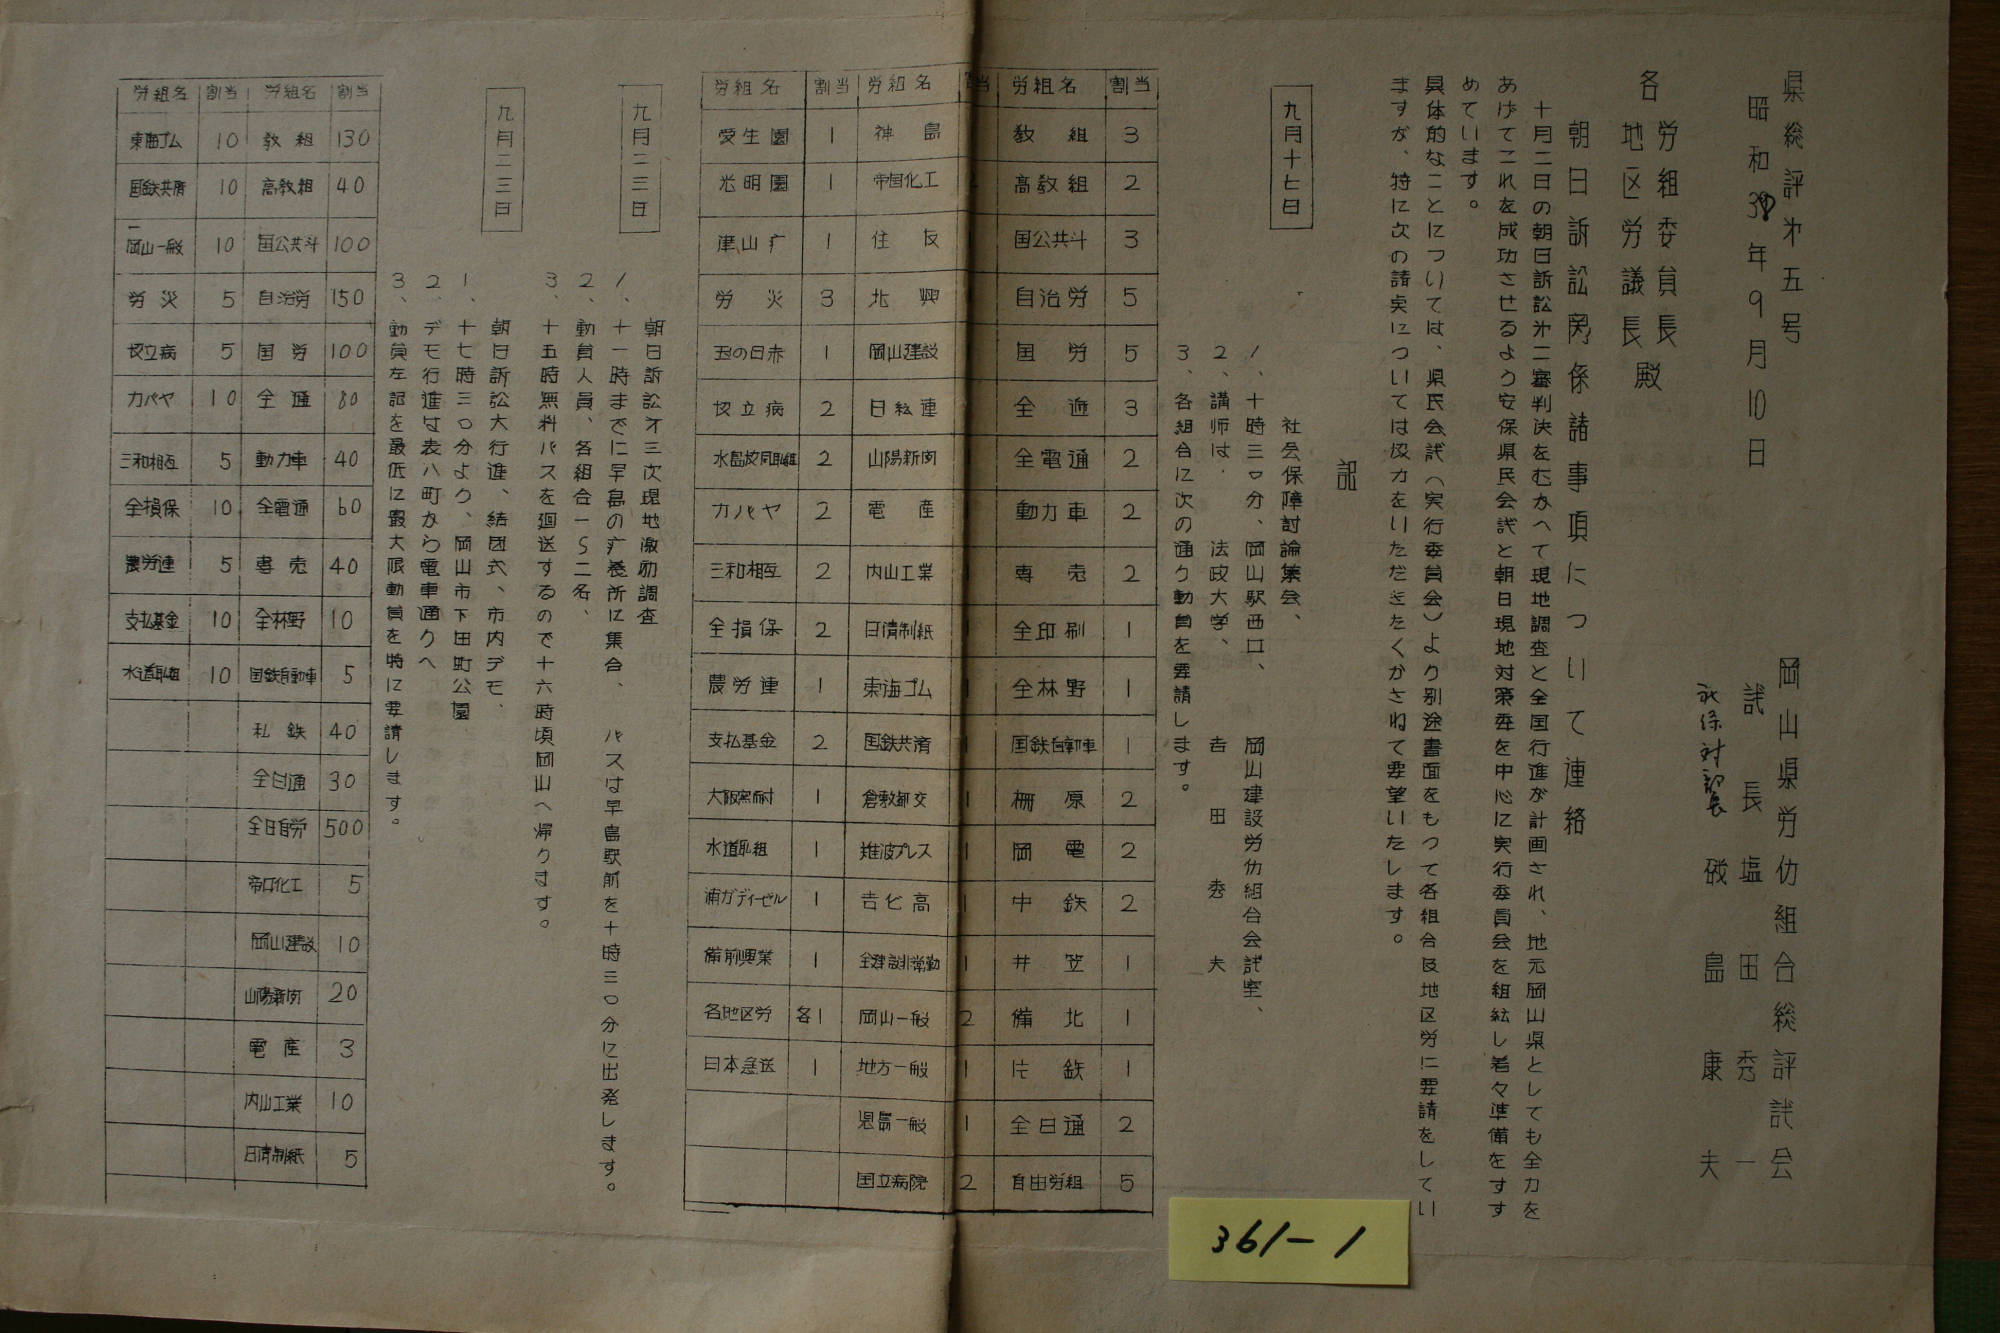 県総評才五号
昭和38年9月10日
岡山県労仂組合総評議会
議長 塩田秀一
社保対部長 砂島康夫
各労組委員長
地区労議長殿
朝日訴訟関係諸事項について連絡
十月二日の朝日訴訟才二審判決をむかへて現地調査と全国行進が計画され、地元岡山県としても全力を
あげてこれを成功させるよう安保県民会議と朝日現地対策委を中心に実行委員会を組織し着々準備をすす
めています。
具体的なことについては、県民会議(実行委員会)より別途書面をもつて各組合及地区労に要請をしてい
ますが、特に次の諸実については協力をいただきたくかさねて要望いたします。
記
九月十七日
社会保障討論集会、
1、十時三〇分、岡山駅西口、岡山建設労仂組合会議室、
2、講師は、法政大学、吉田秀夫
3、各組合に次の通り動員を要請します。
労組名 割当 労組名 割当 労組名 割当
教組 3 神島 愛生園 1
高教組 2 帝国化工 2 光明園 1
国公共斗 3 住友 津山疒 1
自治労 5 北興 労災 3
国労 5 岡山建設 玉の日赤 1
全逓 3 日紘連 協立病 2
全電通 2 山陽新聞 水島協同取組 2
動力車 2 電産 カバヤ 2
専売 2 内山工業 三和相互 2
全印刷 1 日清制紙 1 全損保 2
全林野 1 東海ゴム 1 農労連 1
国鉄自動車 1 国鉄共済 1 支払基金 2
柵原 2 倉敷都交 1 大阪窯耐 1
岡電 2 難波プレス 1 水道取組 1
中鉄 2 吉七高 1 浦ガディーゼル 1
井笠 1 全建設非常勤 1 備前興業 1
備北 1 岡山一般 2 各地区労 各1
片鉄 1 地方一般 1 日本急送 1
全日通 2 児島一般 1
自由労組 5 国立病院 2
九月二三日
朝日訴訟才三次現地激励調査
1、十一時までに早島の疒養所に集合、バスは早島駅前を十時三〇分に出発します。
2、動員人員、各組合一〜二名、
3、十五時無料バスを廻送するので十六時頃岡山へ帰ります。
九月二三日
朝日訴訟大行進、結団式、市内デモ、
1、十七時三〇分より、岡山市下田町公園
2、デモ行進は表八町から電車通りへ
3、動員左記を最低に最大限動員を特に要請します。
労組名 割当 労組名 割当
教組 130 東海ゴム 10
高教組 40 国鉄共済 10
国公共斗 100 岡山一般 10
自治労 150 労災 5
国労 100 協立病 5
全逓 80 カバヤ 10
動力車 40 三和相互 5
全電通 60 全損保 10
専売 40 農労連 5
全林野 10 支払基金 10
国鉄自動車 5 水道取組 10
私鉄 40
全日通 30
全日自労 500
帝口化工 5
岡山建設 10
山陽新聞 20
電産 3
内山工業 10
日清制紙 5
361-1